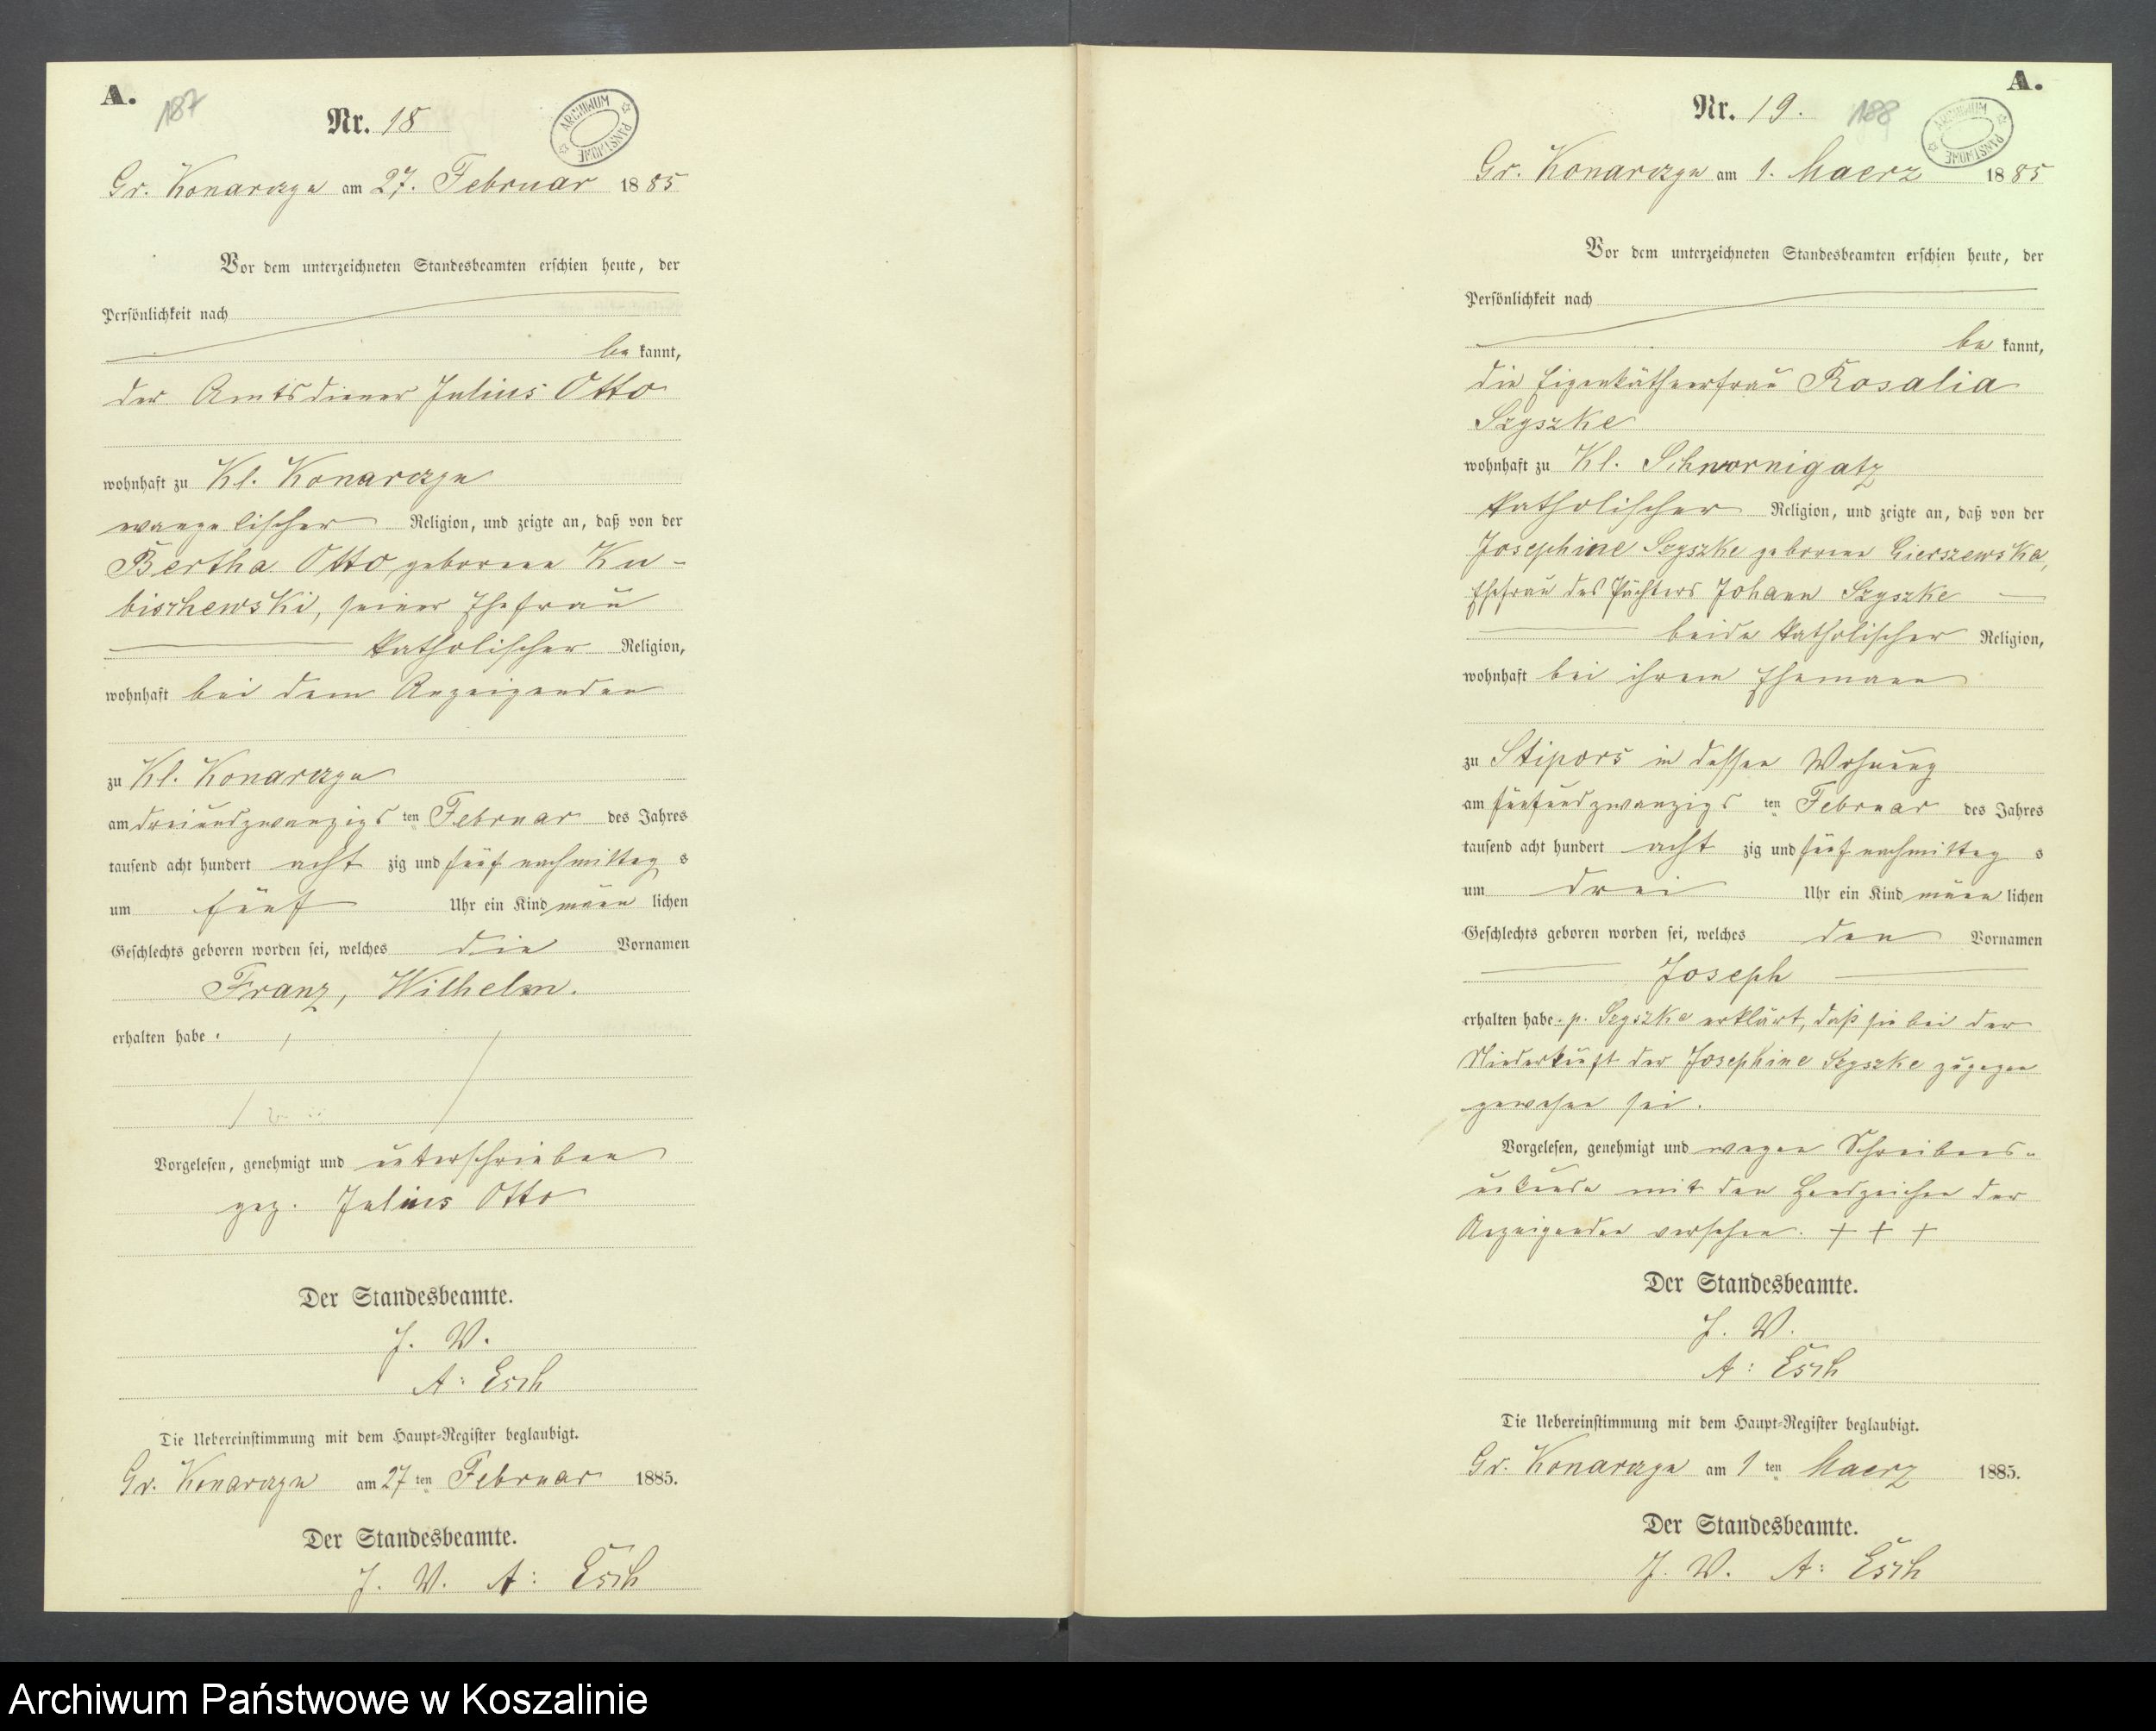 A.
187
Nr. 18
ARCHIWUM PAŃSTWOWE
Gr. Konarczyn am 27. Februar 1885
Vor dem unterzeichneten Standesbeamten erschien heute, der
Persönlichkeit nach
be kannt,
der Amtsdiener Julius Otto
wohnhaft zu Kl. Konarczyn
evangelischer Religion, und zeigte an, daß von der
Bertha Otto, geborene Ku-
bischewski, seiner Ehefrau
katholischer Religion,
wohnhaft bei dem Anzeigenden
zu Kl. Konarczyn
am dreiundzwanzigs ten Februar des Jahres
tausend acht hundert acht zig und fünf nachmittag s
um fünf Uhr ein Kind männ lichen
Geschlechts geboren worden sei, welches die Vornamen
Franz, Wilhelm.
erhalten habe.
Vorgelesen, genehmigt und unterschrieben
gez. Julius Otto
Der Standesbeamte.
J. V.
A: Esch
Die Uebereinstimmung mit dem Haupt-Register beglaubigt.
Gr. Konarczyn am 27 ten Februar 1885.
Der Standesbeamte.
J. V. A: Esch
A.
Nr. 19.
188
ARCHIWUM PAŃSTWOWE
Gr. Konarczyn am 1. Maerz 1885
Vor dem unterzeichneten Standesbeamten erschien heute, der
Persönlichkeit nach
be kannt,
die Eigenkäthnerfrau Rosalia
Szyszke
wohnhaft zu Kl. Schwornigatz
katholischer Religion, und zeigte an, daß von der
Josephine Szyszke geborene Gierszewska,
Ehefrau des Pächters Johann Szyszke
beide katholischer Religion,
wohnhaft bei ihrem Ehemann
zu Stipors in dessen Wohnung
am fünfundzwanzigs ten Februar des Jahres
tausend acht hundert acht zig und fünf nachmittag s
um drei Uhr ein Kind männ lichen
Geschlechts geboren worden sei, welches den Vornamen
Joseph
erhalten habe. p. Szyszke erklärt, daß sie bei der
Niederkunft der Josephine Szyszke zugegen
gewesen sei.
Vorgelesen, genehmigt und wegen Schreibens-
unkunde mit den Handzeichen der
Anzeigenden versehen. + + +
Der Standesbeamte.
J. V.
A: Esch
Die Uebereinstimmung mit dem Haupt-Register beglaubigt.
Gr. Konarczyn am 1 ten Maerz 1885.
Der Standesbeamte.
J. V. A: Esch
Archiwum Państwowe w Koszalinie